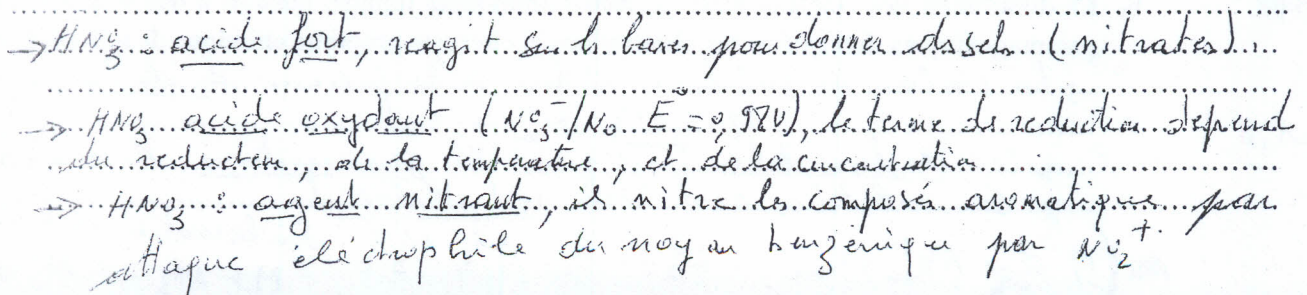 → HNO3 : acide fort, reagit sur les bases pour donner des sels (nitrates).
→ HNO3 acide oxydant (NO3-/NO E° = 0,98V), le terme de reduction depend
du reducteur, de la temperature, et de la concentration
→ HNO3 : agent nitrant, il nitre les composés aromatiques par
attaque électrophile du noyau benzénique par NO2+.